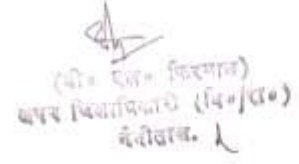 (वी० एल० फिरमाल)
अपर जिलाधिकारी (वि०/रा०)
नैनीताल.